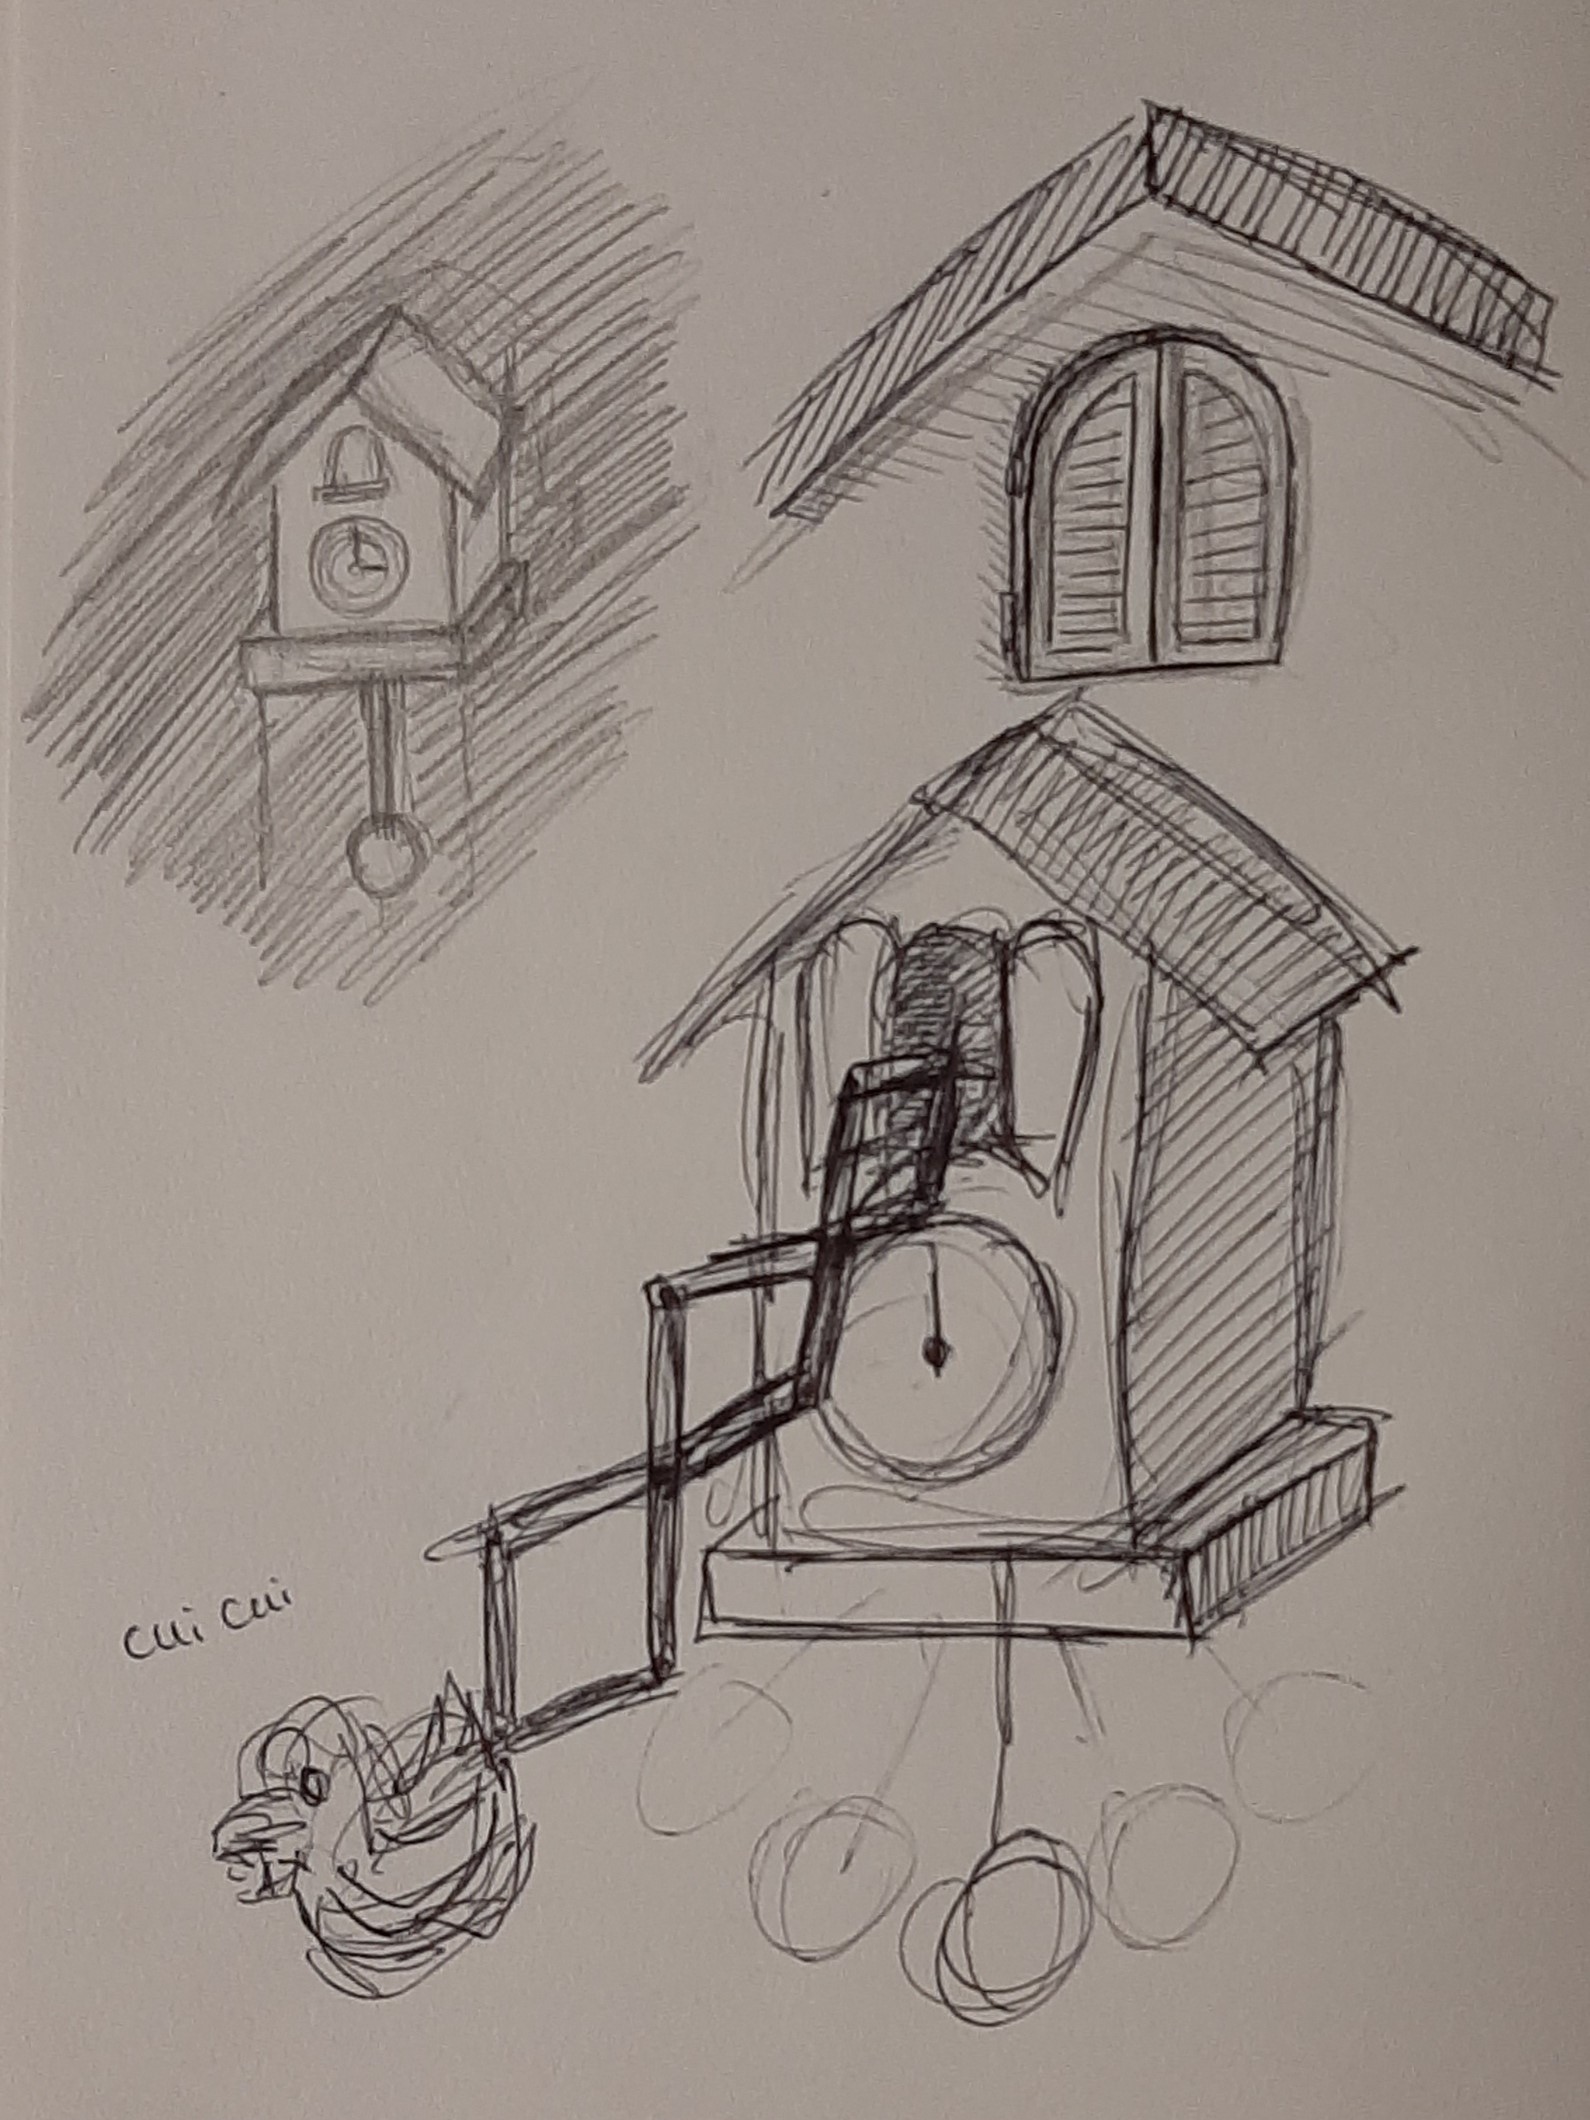 cui cui